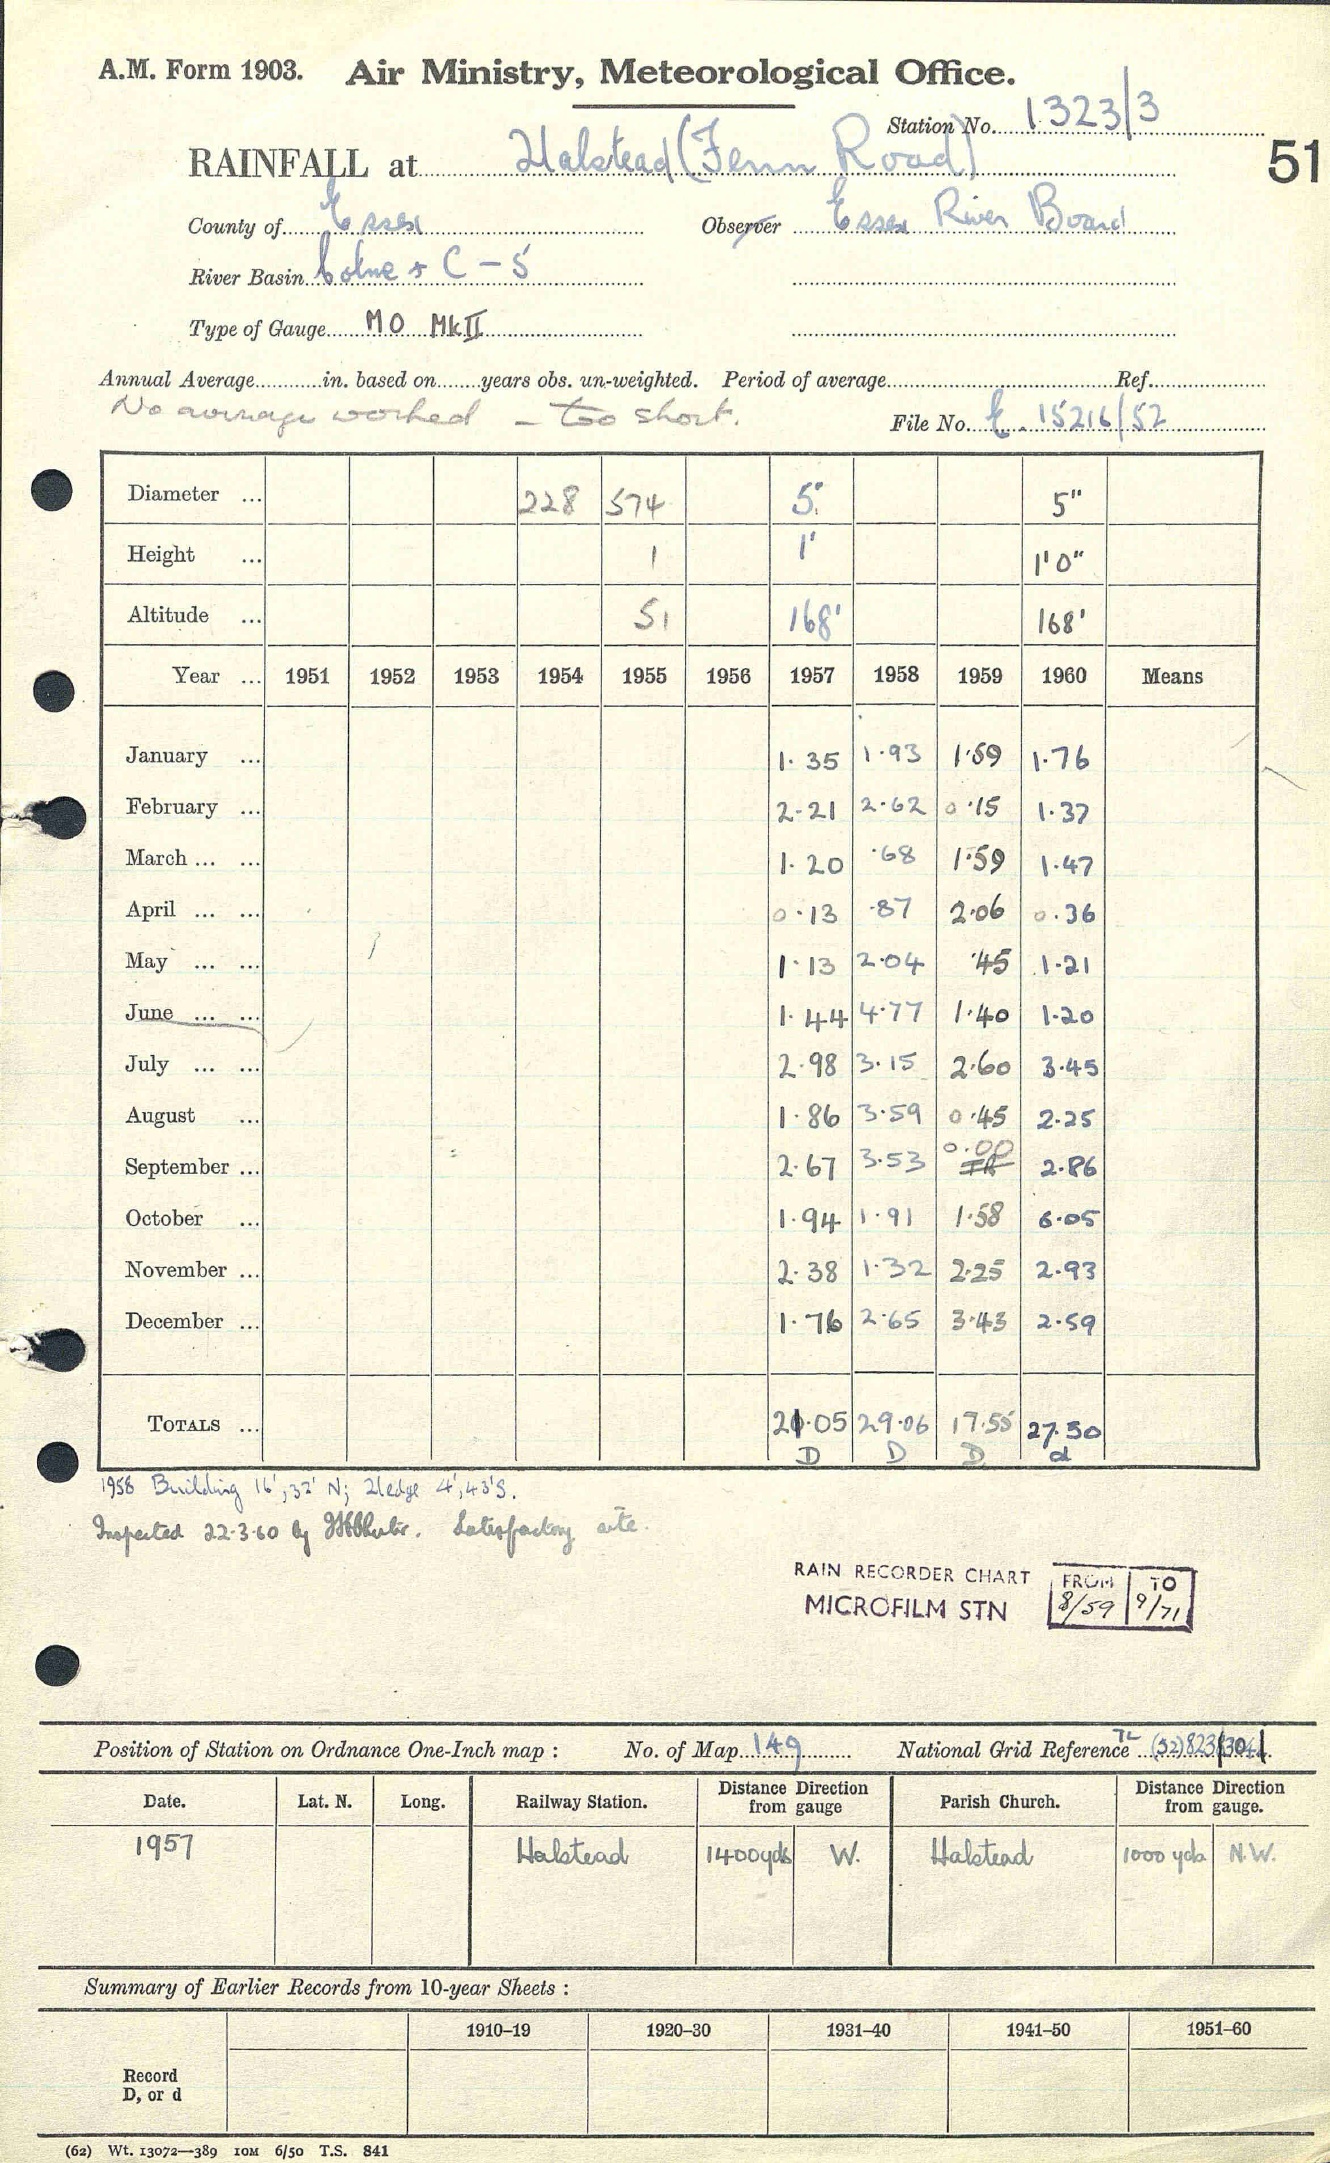 A.M. Form 1903. Air Ministry, Meteorological Office.
Station No. 1323/3
RAINFALL at Halstead (Fenn Road)
51
County of Essex Observer Essex River Board
River Basin Colne + C - 5
Type of Gauge MO Mk II
Annual Average in. based on years obs. un-weighted. Period of average Ref.
No average worked - too short.
File No. E. 15216/52
Diameter ... 228 574 5" 5"
Height ... 1 1' 1'0"
Altitude ... 51 168' 168'
Year ... 1951 1952 1953 1954 1955 1956 1957 1958 1959 1960 Means
January ... 1.35 1.93 1.59 1.76
February ... 2.21 2.62 0.15 1.37
March ... ... 1.20 .68 1.59 1.47
April ... ... 0.13 .87 2.06 0.36
May ... ... 1.13 2.04 .45 1.21
June ... ... 1.44 4.77 1.40 1.20
July ... ... 2.98 3.15 2.60 3.45
August ... 1.86 3.59 0.45 2.25
September ... 2.67 3.53 0.00 2.86
October ... 1.94 1.91 1.58 6.05
November ... 2.38 1.32 2.25 2.93
December ... 1.76 2.65 3.43 2.59
TOTALS ... 21.05 29.06 17.55 27.50
D D D d
1958 Building 16', 32' N; Hedge 4', 43'S.
Inspected 22.3.60 by Satisfactory site.
RAIN RECORDER CHART FROM TO
MICROFILM STN 8/59 9/71
Position of Station on Ordnance One-Inch map : No. of Map 149 National Grid Reference TL (52) 823 304
Date. Lat. N. Long. Railway Station. Distance from gauge Direction Parish Church. Distance from gauge. Direction
1957 Halstead 1400yds W. Halstead 1000 yds N.W.
Summary of Earlier Records from 10-year Sheets :
1910-19 1920-30 1931-40 1941-50 1951-60
Record
D, or d
(62) Wt. 13072—389 10M 6/50 T.S. 841